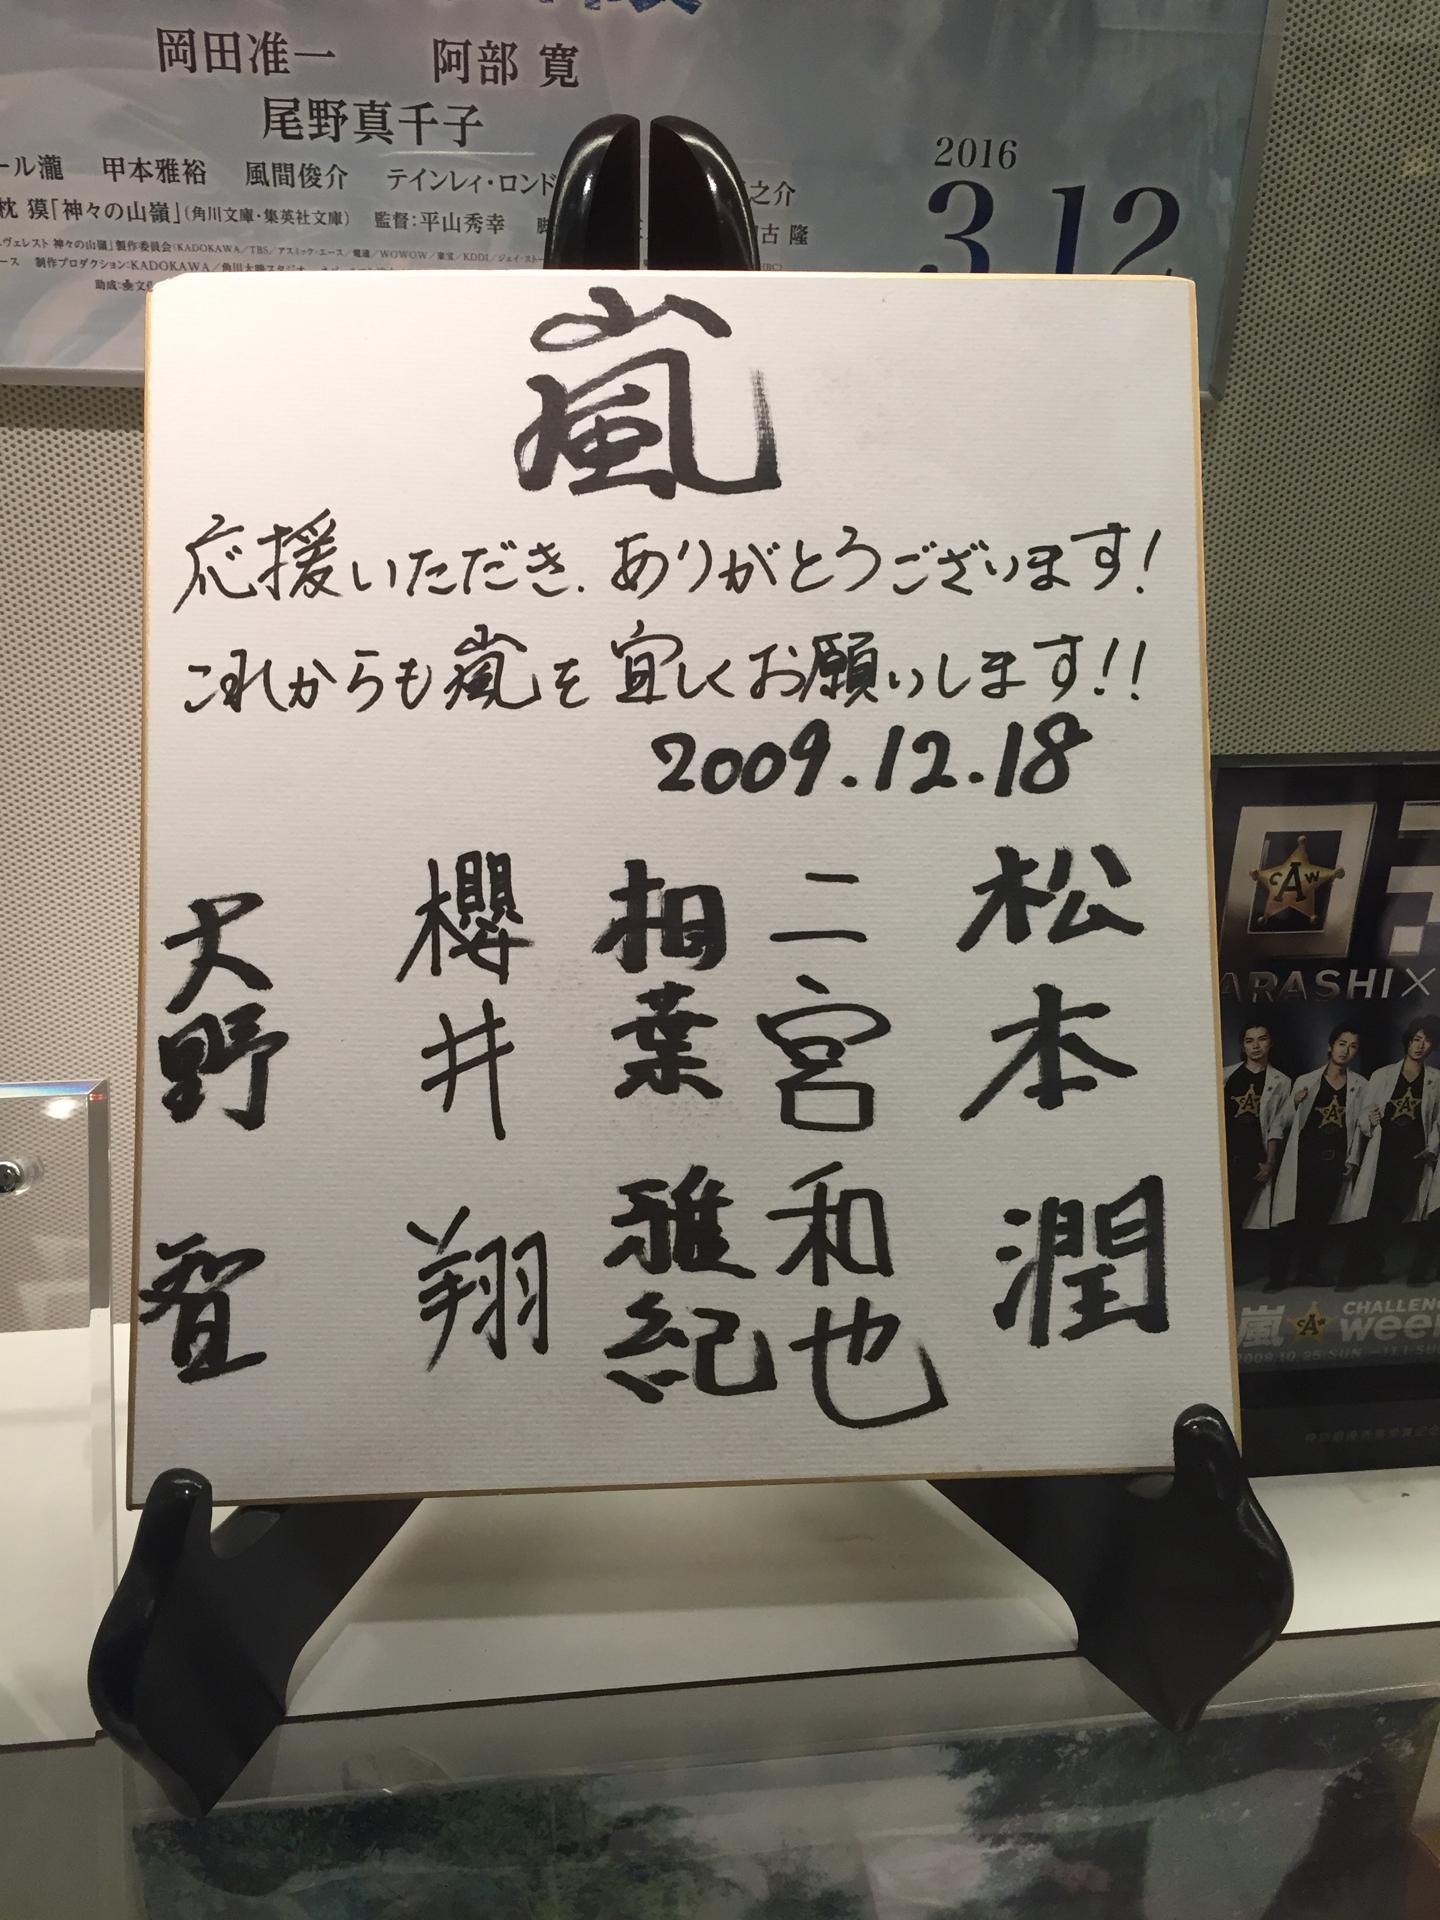 岡田准一 阿部 寛
尾野真千子
ール瀧 甲本雅裕 風間俊介 テインレィ・ロンド
之介
枕 獏「神々の山嶺」(角川文庫・集英社文庫) 監督:平山秀幸
古 隆
ヴェレスト 神々の山嶺」製作委員会(KADOKAWA/TBS/アスミック・エース/電通/WOWOW/東宝/KDDI/ジェイ・スト
ース 制作プロダクション:KADOKAWA/角川大映スタジオ
助成:
2016
3.12
嵐
応援いただき、ありがとうございます!
これからも嵐を宜しくお願いします!!
2009.12.18
大野 智
櫻井 翔
相葉 雅紀
二宮 和也
松本 潤
CAW
ARASHI×
CAW
CAW
CAW
嵐 CAW CHALLEN
wee
2009.10.25.SUN.—11.1.SU